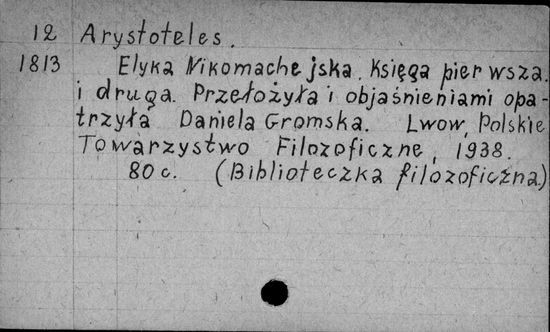 12 Arystoteles.
1813 Etyka Nikomachejska. Księga pierwsza
i druga. Przełożyła i objaśnieniami opa-
trzyła Daniela Gromska. Lwow, Polskie
Towarzystwo Filozoficzne, 1938.
80 c. (Biblioteczka filozoficzna)